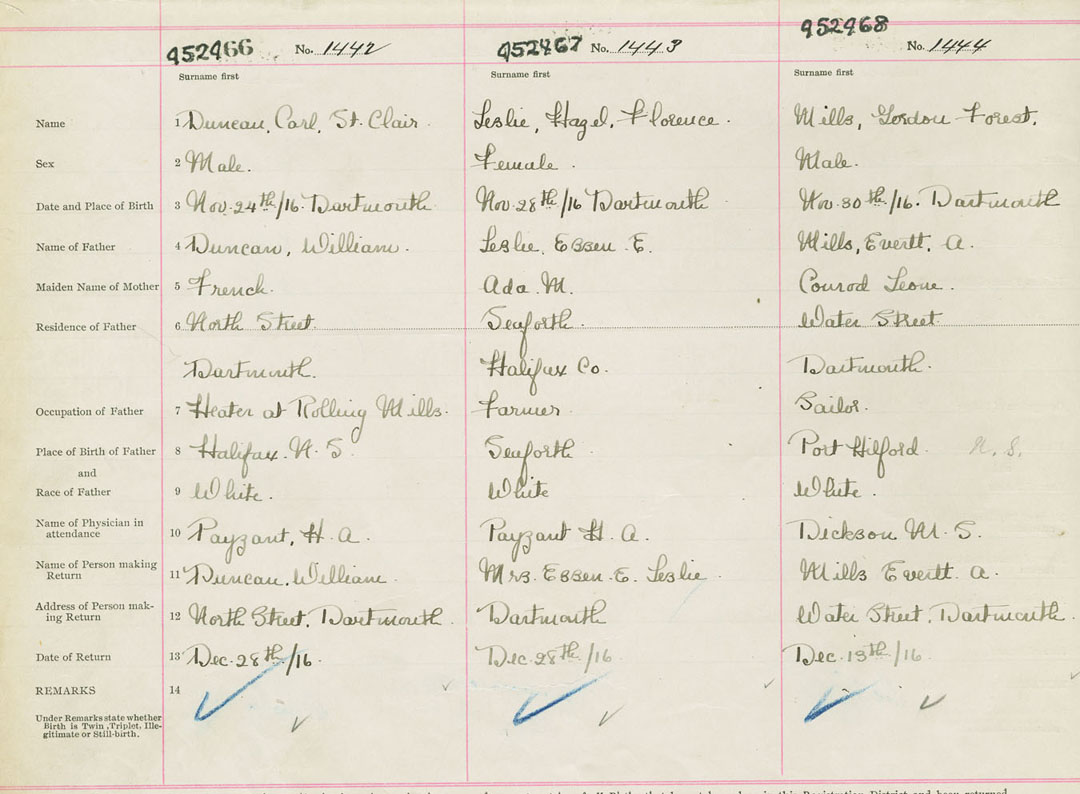 952466 No. 1442 952467 No. 1443 952468 No. 1444
Surname first Surname first Surname first
Name 1 Duncan, Carl, St. Clair. Leslie, Hazel, Florence. Mills, Gordon Forest.
Sex 2 Male. Female. Male.
Date and Place of Birth 3 Nov. 24th/16. Dartmouth Nov. 28th/16 Dartmouth Nov. 30th/16. Dartmouth
Name of Father 4 Duncan, William. Leslie, Essen E. Mills, Evertt, A.
Maiden Name of Mother 5 French. Ada M. Conrod Leone.
Residence of Father 6 North Street Seaforth Water Street
Dartmouth. Halifax Co. Dartmouth.
Occupation of Father 7 Heater at Rolling Mills. Farmer Sailor.
Place of Birth of Father 8 Halifax. N. S. Seaforth Port Hilford N. S.
and
Race of Father 9 White. White White.
Name of Physician in
attendance 10 Payzant, H. A. Payzant H. A. Dickson M. S.
Name of Person making
Return 11 Duncan, William. Mrs. Essen. E. Leslie. Mills Evertt. A.
Address of Person mak-
ing Return 12 North Street, Dartmouth. Dartmouth Water Street, Dartmouth.
Date of Return 13 Dec. 28th/16. Dec. 28th/16 Dec. 13th/16
REMARKS 14
Under Remarks state whether
Birth is Twin, Triplet, Ille-
gitimate or Still-birth.